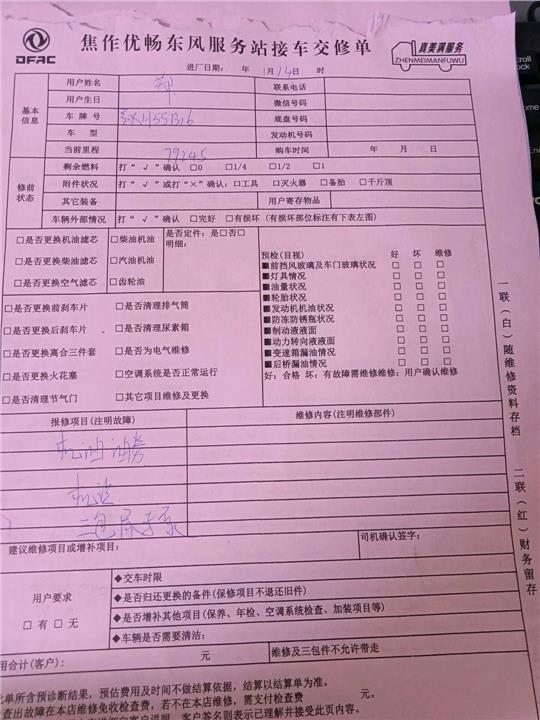 DFAC
焦作优畅东风服务站接车交修单
真美满服务
ZHENMEIMANFUWU
进厂日期: 年 1月14日 时
基本信息
用户姓名 郑 联系电话
用户生日 微信号码
车牌号 底盘号码
车型 发动机号码
当前里程 79245 购车时间 年 月 日
修前状态
剩余燃料 打“√”确认 □0 □1/4 □1/2 □1
附件状况 打“√”或打“×”确认:□工具 □灭火器 □备胎 □千斤顶
其它装备 用户寄存物品
车辆外部情况 打“√”确认 □完好 □有损坏(有损坏部位标注有下表左图)
□是否更换机油滤芯 □柴油机油 是否定件: 是□否□
□是否更换柴油滤芯 □汽油机油 明细:
□是否更换空气滤芯 □齿轮油
□是否更换前刹车片 □是否清理排气筒
□是否更换后刹车片 □是否清理尿素箱
□是否更换离合三件套 □是否为电气维修
□是否更换火花塞 □空调系统是否正常运行
□是否清理节气门 □其它项目维修及更换
预检(目视) 好 坏 维修
■前挡风玻璃及车门玻璃状况 □ □ □
■灯具情况 □ □ □
■油量状况 □ □ □
■轮胎状况 □ □ □
■发动机机油状况 □ □ □
■防冻防锈瓶状况 □ □ □
■制动液液面 □ □ □
■动力转向液液面 □ □ □
■变速箱漏油情况 □ □ □
■后桥漏油情况 □ □ □
好: 合格 坏: 有故障需维修维修: 用户确认维修
报修项目(注明故障) 维修内容(注明维修部件)
机油
机滤
三包尿素泵
建议维修项目或增补项目: 司机确认签字:
用户要求
□有 □无
◆交车时限
◆是否归还更换的备件(保修项目不退还旧件)
◆是否增补其他项目(保养、年检、空调系统检查、加装项目等)
◆车辆是否需要清洁:
用合计(客户): 元 维修及三包件不允许带走
此单所含预诊断结果, 预估费用及时间不做结算依据, 结算以结算单为准。
查出故障在本店维修免收检查费, 若不在本店维修, 需支付检查费 元。
客户签名则表示已理解并接受此页内容。
一联(白)随维修资料存档
二联(红)财务留存